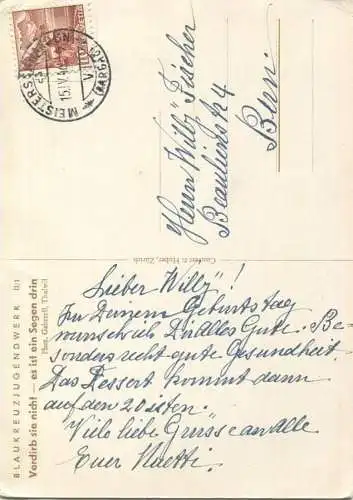 MEISTERSCHWANDEN
15.IV.4
(AARGAU)
HELVETIA
Herrn Willy Fischer
Beaulieustr 4
Bern
Conzett & Huber, Zürich
BLAUKREUZJUGENDWERK
Verdirb sie nicht — es ist ein Segen drin
Phot. Gaberell, Thalwil
Lieber Willy!
Zu Deinem Geburtstag
wunsch ich Dir Alles Gute. Be-
sonders recht gute Gesundheit
Das Dessert kommt dann
auf den 20isten.
Viele liebe Grüsse an Alle
Euer Muetti